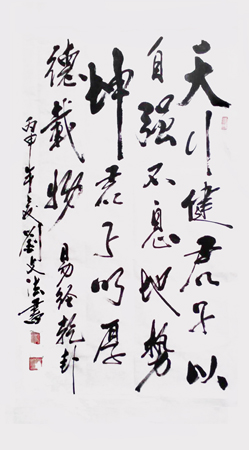 天行健君子以
自强不息地势
坤君子以厚
德载物
易经乾卦
丙申年夏刘文法书